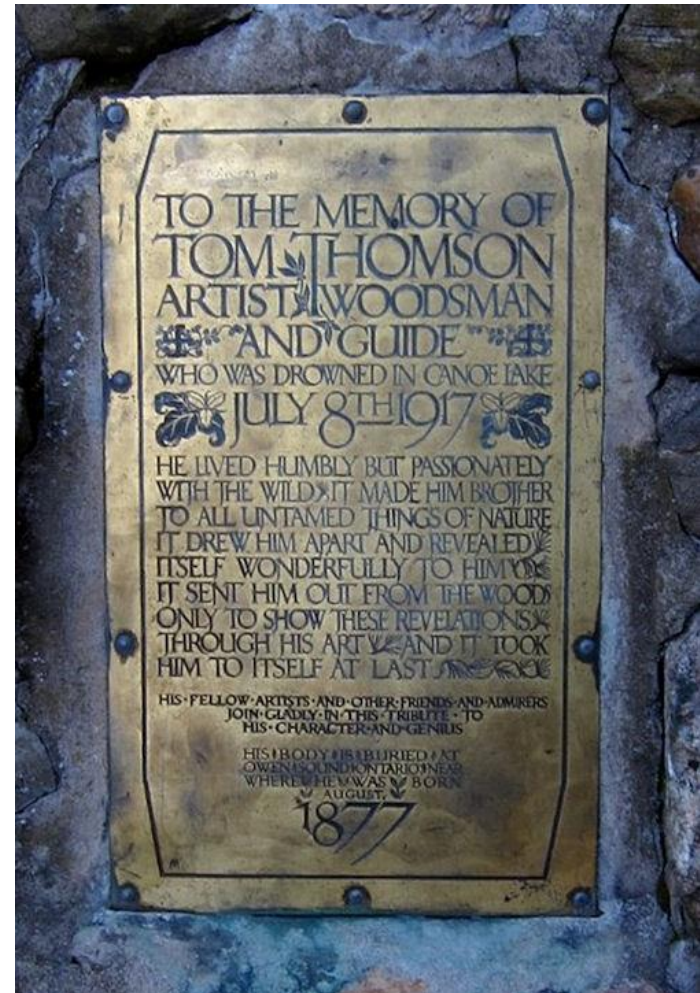 TO THE MEMORY OF
TOM THOMSON
ARTIST WOODSMAN
AND GUIDE
WHO WAS DROWNED IN CANOE LAKE
JULY 8TH 1917
HE LIVED HUMBLY BUT PASSIONATELY
WITH THE WILD IT MADE HIM BROTHER
TO ALL UNTAMED THINGS OF NATURE
IT DREW HIM APART AND REVEALED
ITSELF WONDERFULLY TO HIM
IT SENT HIM OUT FROM THE WOODS
ONLY TO SHOW THESE REVELATIONS
THROUGH HIS ART AND IT TOOK
HIM TO ITSELF AT LAST
HIS·FELLOW·ARTISTS·AND·OTHER·FRIENDS·AND·ADMIRERS
JOIN·GLADLY·IN·THIS·TRIBUTE·TO
HIS·CHARACTER·AND·GENIUS
HIS BODY IS BURIED AT
OWEN SOUND ONTARIO NEAR
WHERE HE WAS BORN
AUGUST,
1877